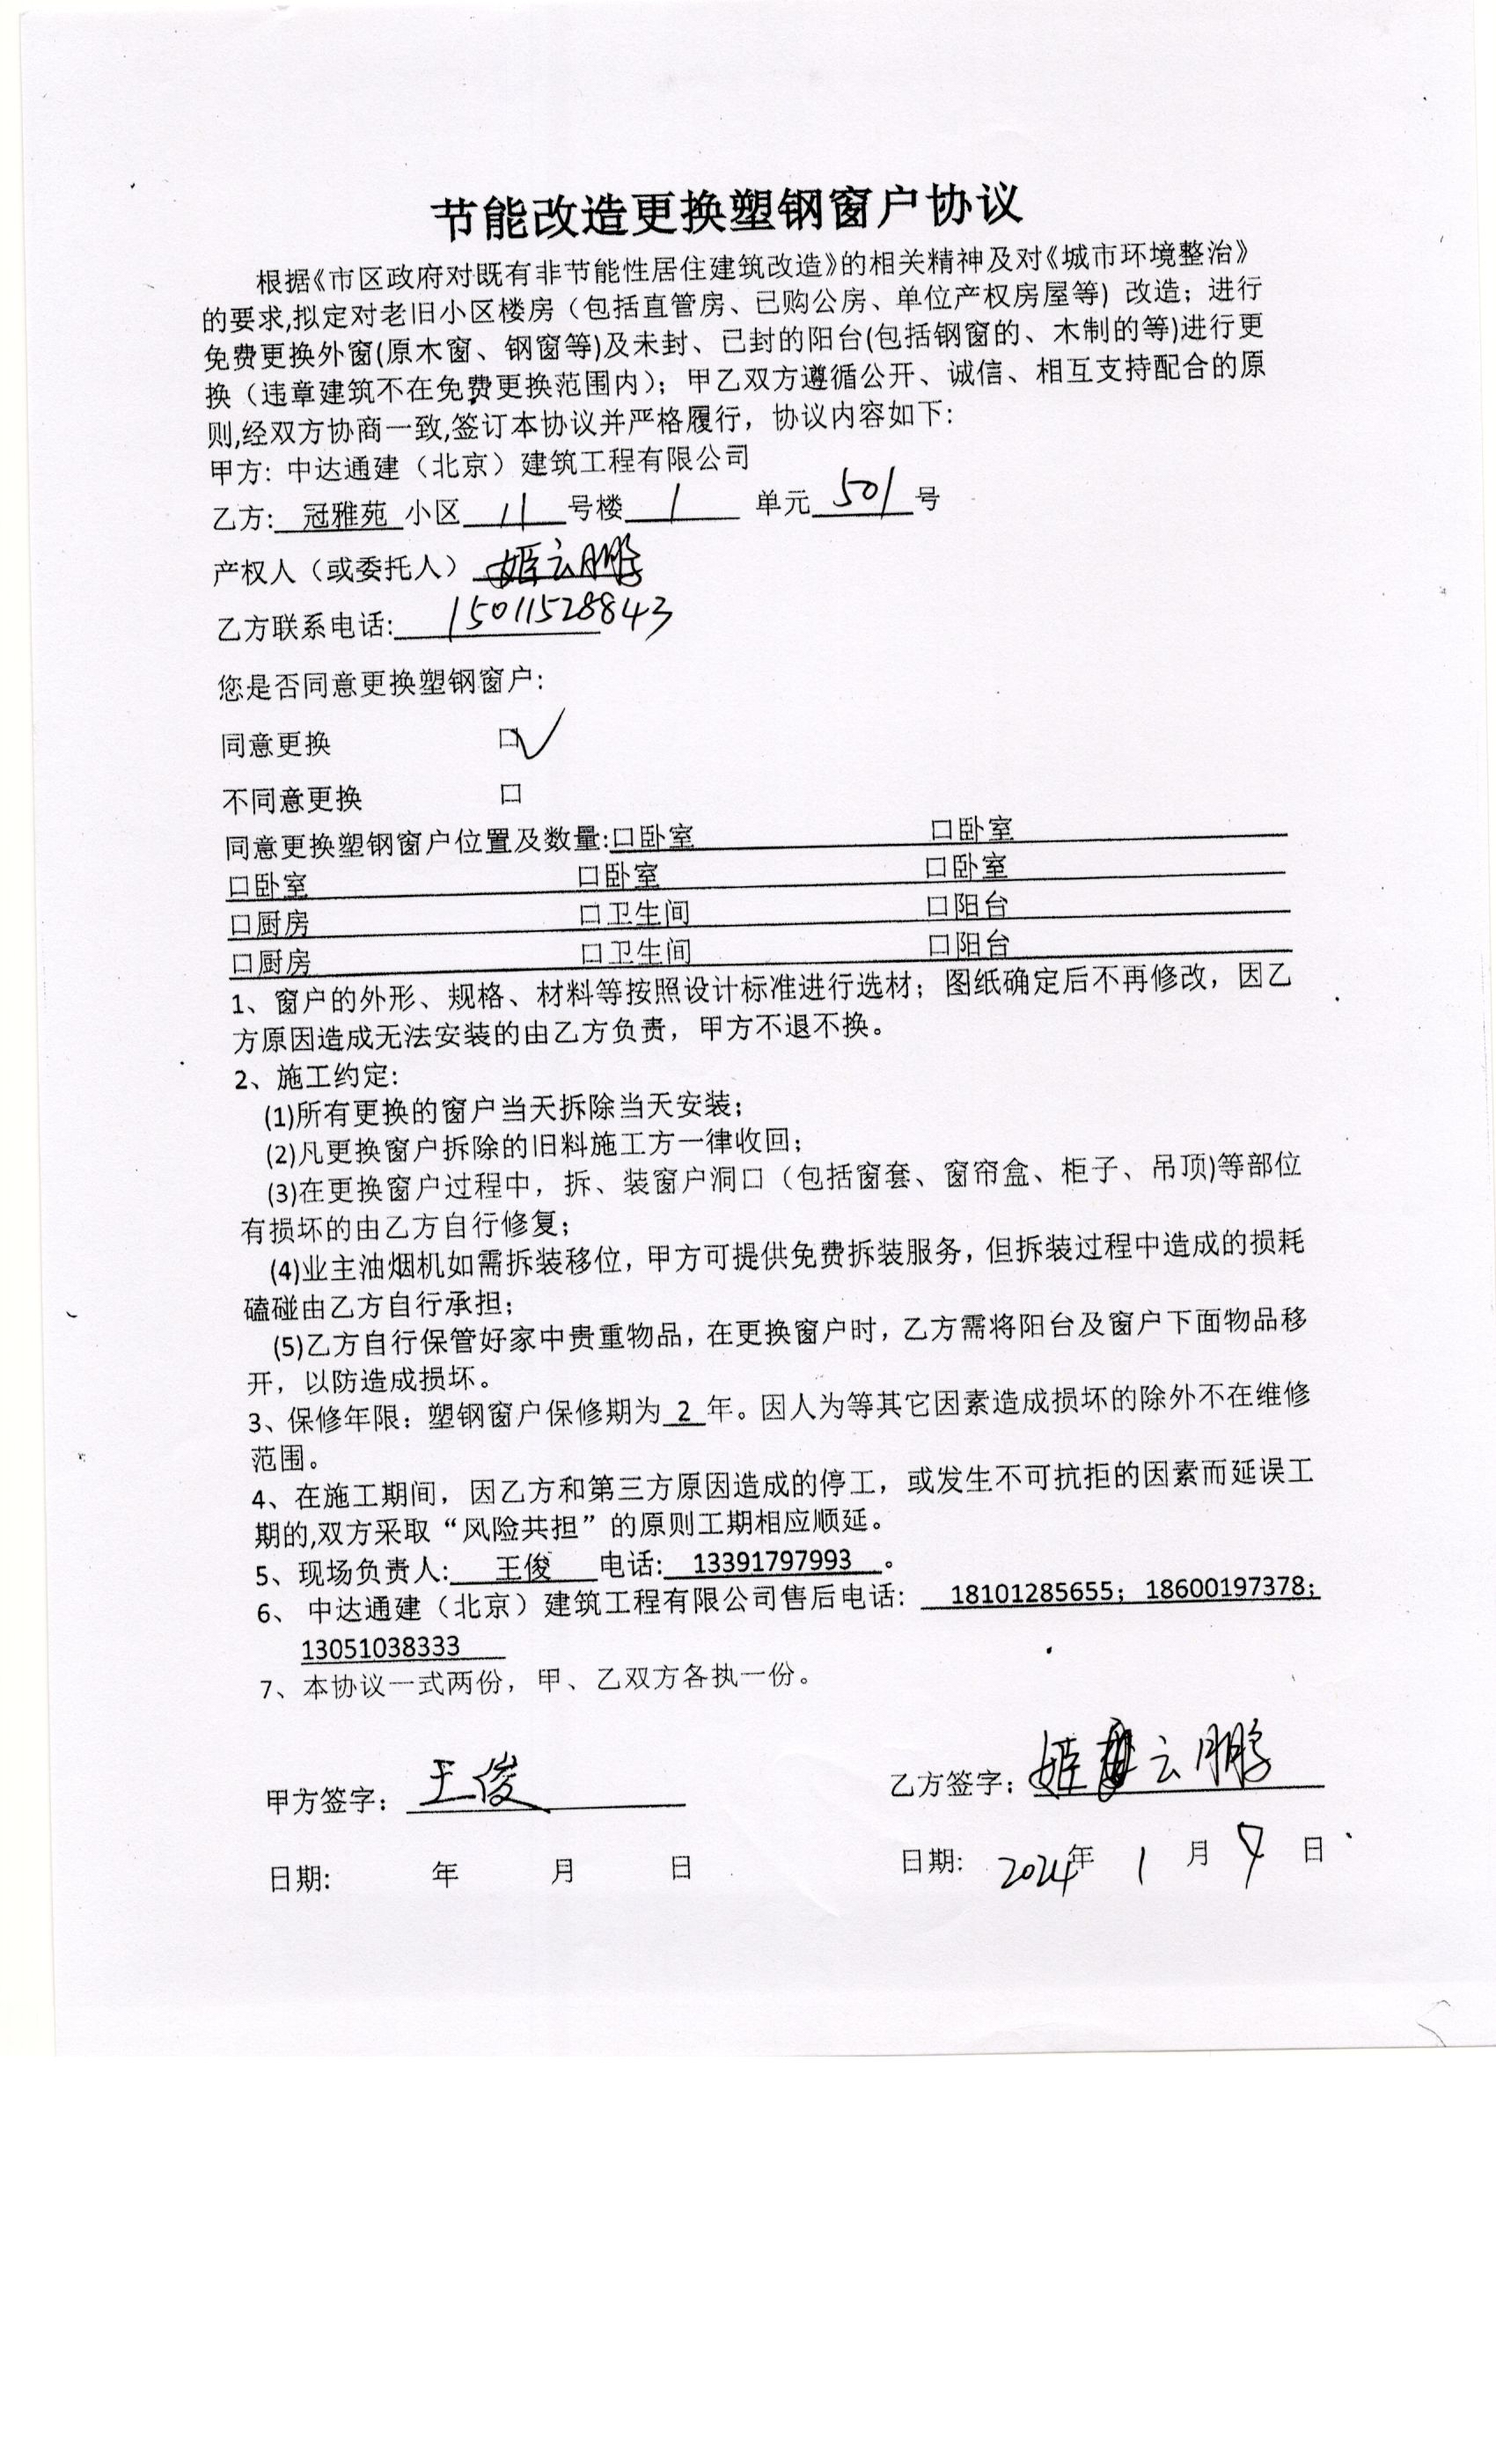 节能改造更换塑钢窗户协议
根据《市区政府对既有非节能性居住建筑改造》的相关精神及对《城市环境整治》
的要求,拟定对老旧小区楼房（包括直管房、已购公房、单位产权房屋等）改造；进行
免费更换外窗(原木窗、钢窗等)及未封、已封的阳台(包括钢窗的、木制的等)进行更
换（违章建筑不在免费更换范围内）；甲乙双方遵循公开、诚信、相互支持配合的原
则,经双方协商一致,签订本协议并严格履行，协议内容如下：
甲方：中达通建（北京）建筑工程有限公司
乙方: 冠雅苑 小区 11 号楼 1 单元 501 号
产权人（或委托人） 姬云鹏
乙方联系电话: 15011528843
您是否同意更换塑钢窗户：
同意更换 口√
不同意更换 口
同意更换塑钢窗户位置及数量:口卧室 口卧室
口卧室 口卧室 口卧室
口厨房 口卫生间 口阳台
口厨房 口卫生间 口阳台
1、窗户的外形、规格、材料等按照设计标准进行选材；图纸确定后不再修改，因乙
方原因造成无法安装的由乙方负责，甲方不退不换。
2、施工约定:
(1)所有更换的窗户当天拆除当天安装；
(2)凡更换窗户拆除的旧料施工方一律收回；
(3)在更换窗户过程中，拆、装窗户洞口（包括窗套、窗帘盒、柜子、吊顶)等部位
有损坏的由乙方自行修复；
(4)业主油烟机如需拆装移位，甲方可提供免费拆装服务，但拆装过程中造成的损耗
磕碰由乙方自行承担；
(5)乙方自行保管好家中贵重物品，在更换窗户时，乙方需将阳台及窗户下面物品移
开，以防造成损坏。
3、保修年限：塑钢窗户保修期为 2 年。因人为等其它因素造成损坏的除外不在维修
范围。
4、在施工期间，因乙方和第三方原因造成的停工，或发生不可抗拒的因素而延误工
期的,双方采取“风险共担”的原则工期相应顺延。
5、现场负责人: 王俊 电话: 13391797993 。
6、 中达通建（北京）建筑工程有限公司售后电话： 18101285655；18600197378；
13051038333
7、本协议一式两份，甲、乙双方各执一份。
甲方签字： 王俊 乙方签字： 姬云鹏
日期: 年 月 日 日期: 2024年 1 月 日